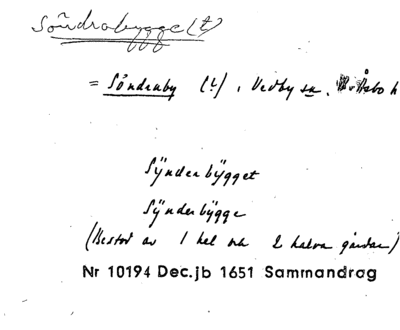 Söndrabygge (t)
= Söndraby (t), Vedby sn, N. Åsbo h
Sÿnderbÿgget
Sÿnderbÿgge
(Bestod av 1 hel och 2 halva gårdar)
Nr 10194 Dec.jb 1651 Sammandrag